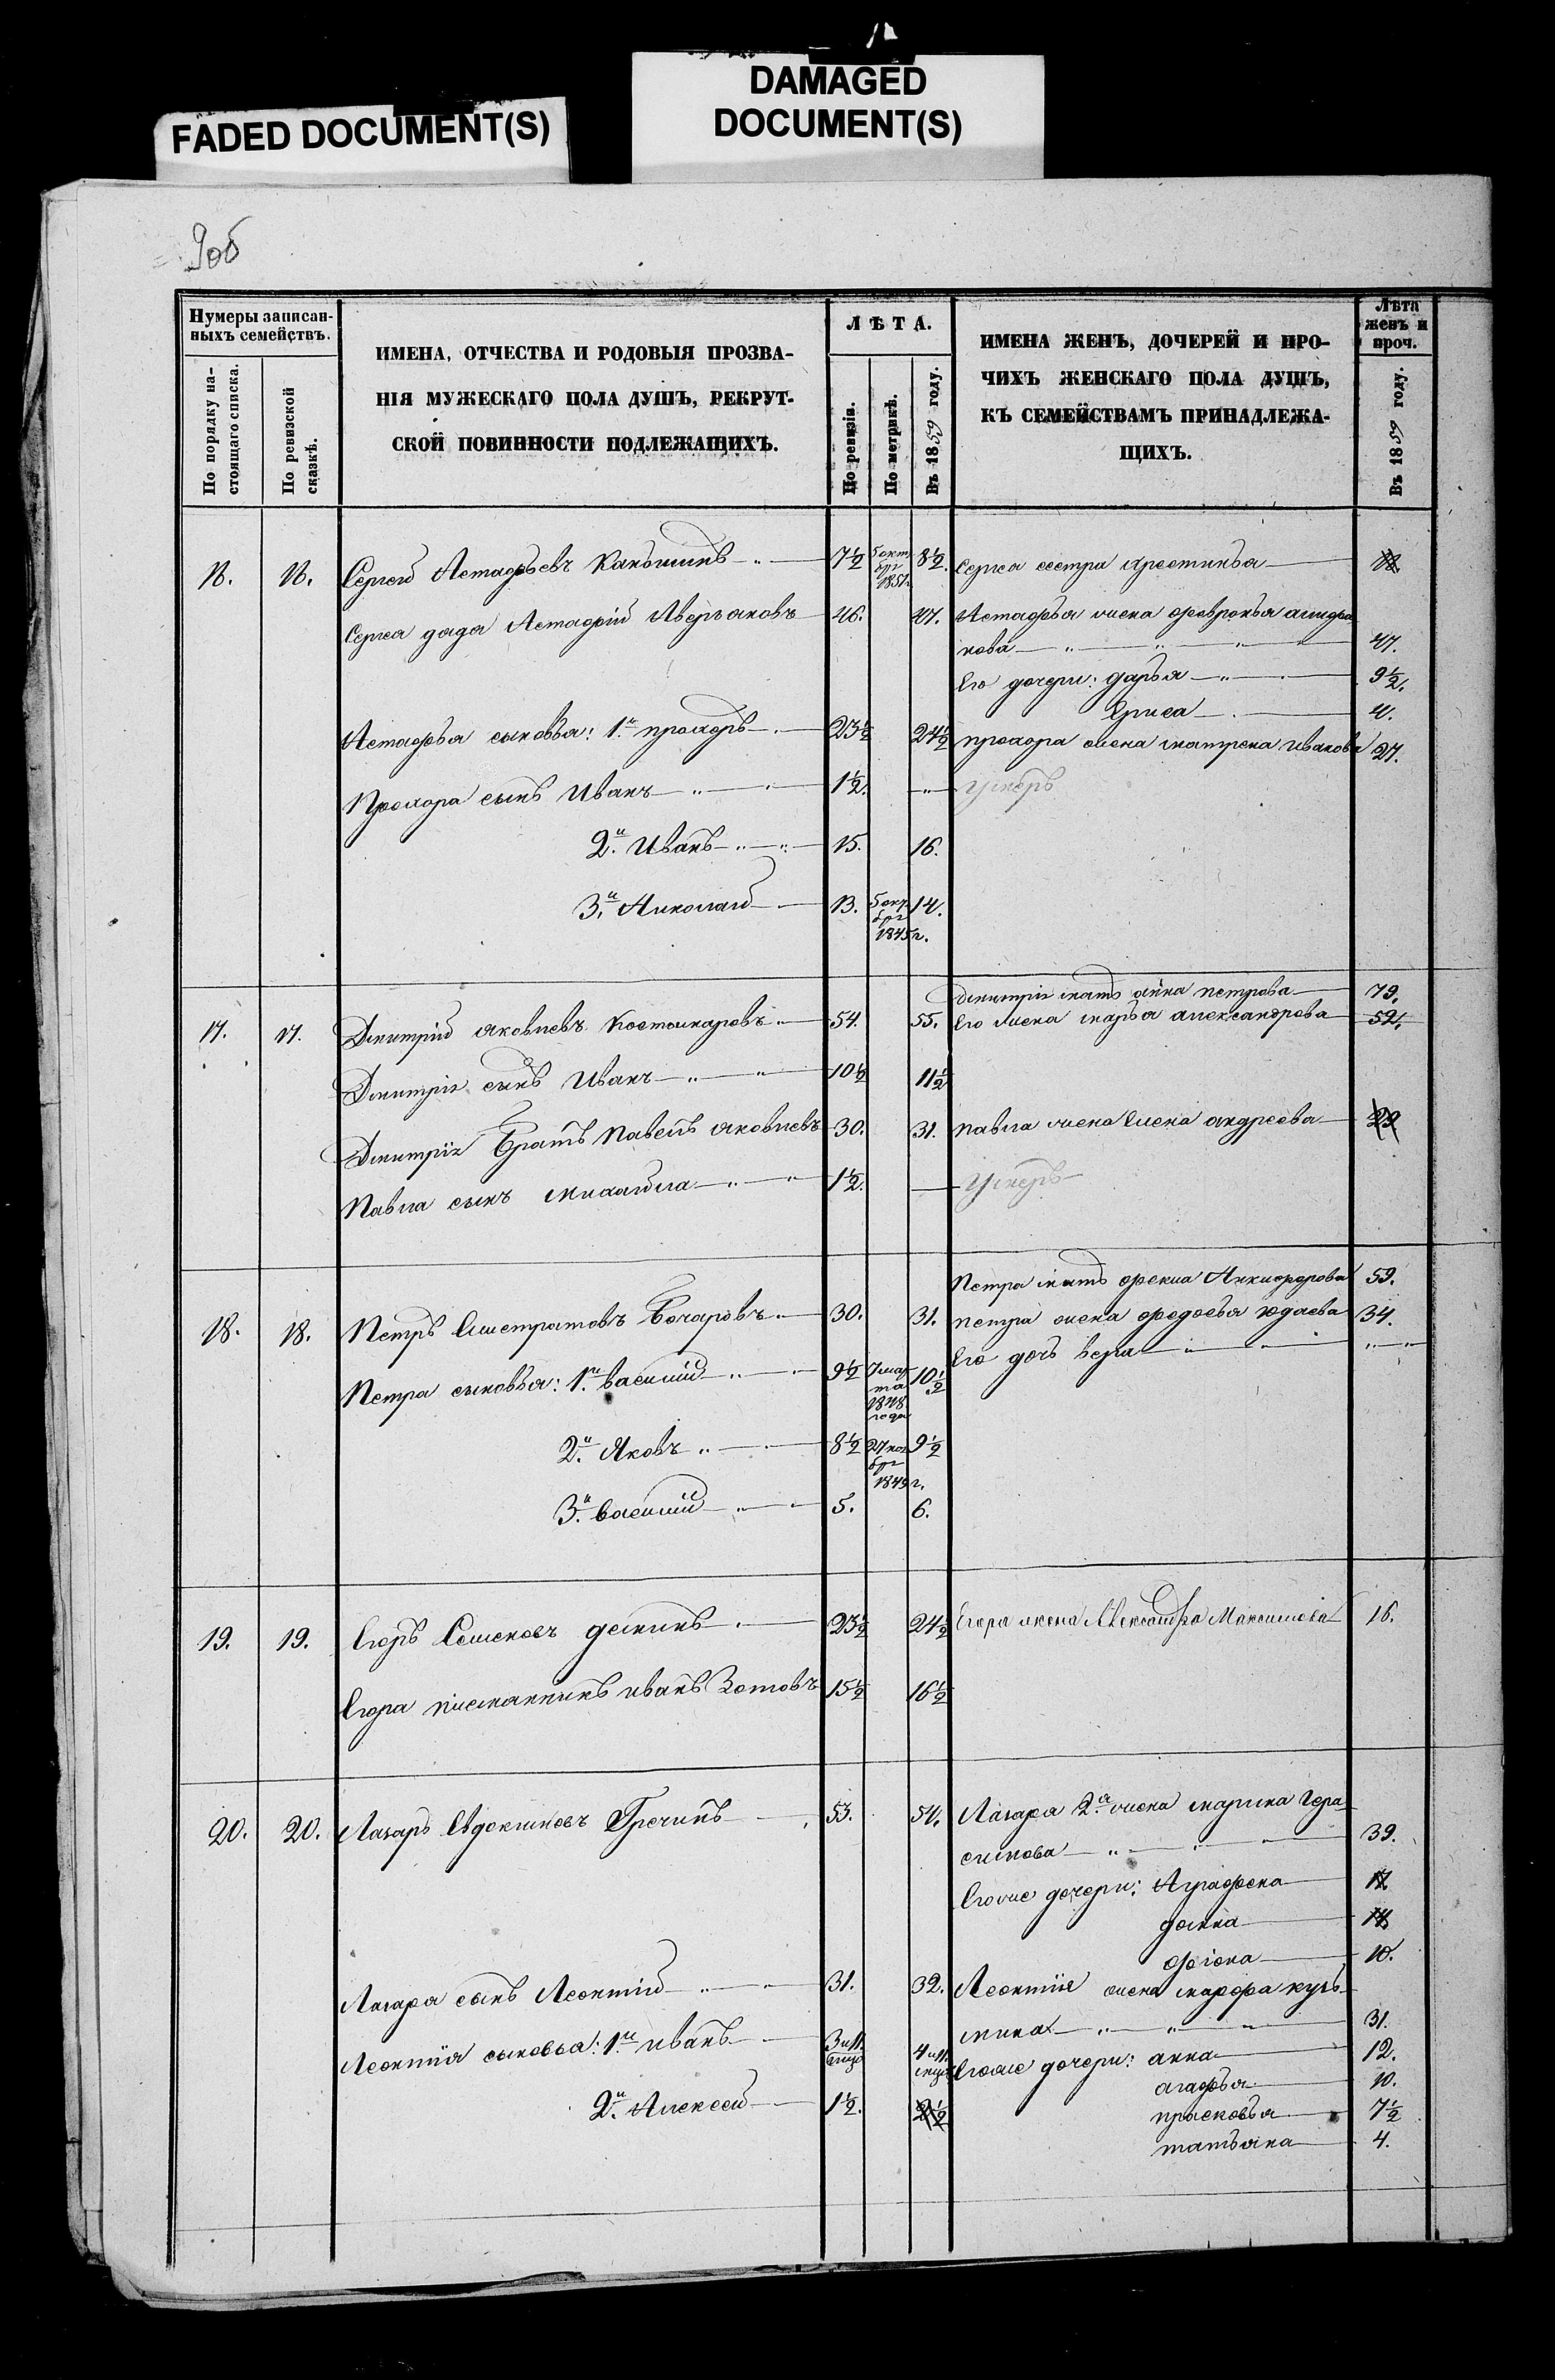 FADED DOCUMENT(S)
DAMAGED
DOCUMENT(S)
9об
Нумеры записан-
ныхъ семействъ.
По порядку на-
стоящаго списка.
По ревизской
сказкѣ.
ИМЕНА, ОТЧЕСТВА И РОДОВЫЯ ПРОЗВА-
НІЯ МУЖЕСКАГО ПОЛА ДУШЪ, РЕКРУТ-
СКОЙ ПОВИННОСТИ ПОДЛЕЖАЩИХЪ.
ЛѢТА.
По ревизіи.
По метрикѣ.
Въ 1859 году.
ИМЕНА ЖЕНЪ, ДОЧЕРЕЙ И ПРО-
ЧИХЪ ЖЕНСКАГО ПОЛА ДУШЪ,
КЪ СЕМЕЙСТВАМЪ ПРИНАДЛЕЖА-
ЩИХЪ.
Лѣта
женъ и
проч.
Въ 1859 году.
Сергей Астафьевъ 7½ 5 октя
бря
1851г. 8½. Сергея сестра
Сергея дядя Астафій Аверьяновъ 46. 47. Астафья жена февронья
нова 47.
Его дочери: дарья 9½.
4.
Астафья сыновья: 1й прохоръ 23½ 24½ прохора жена матрена иванова 27.
Прохора сынъ Иванъ 1½. умеръ
2й Иванъ 15. 16.
3й Николай 13. 5
бря
1845г. 14.
Дмитрія мать анна петрова 79.
17. 17. Дмитрій яковлевъ 54. 55. Его жена марья александрова 52.
Дмитрія сынъ Иванъ 10½ 11½
Дмитрія братъ Павелъ яковлевъ 30. 31. Павла жена Елена андреева 29
Павла сынъ Михайла 1½. умеръ
Петра мать фекла Анкифорова 59.
18. 18. Петръ Елистратовъ Бочаровъ 30. 31. Петра жена федосья юдаева 34.
Его дочь вера
Петра сыновья: 1й василій 9½ 7 мар
та
1848
года 10½
2й Яковъ 8½ 27 ноя
бря
1849г. 9½
3й василій 5. 6.
19. 19. Егоръ Семеновъ деминъ 23½ 24½ Егора жена Александра Максимова 16.
Егора племянникъ иванъ Зотовъ 15½ 16½
20. 20. Лазарь Евдокимовъ Гречинъ 53. 54. Лазаря 2я жена марина гера
симова 39.
Егоже дочери: Аграфена
домна
фіона 10.
Лазаря сынъ Леонтій 31. 32. Леонтія жена марфа кузь
мина 31.
Леонтія сыновья: 1й иванъ Егоже дочери: анна 12.
агафья 10.
2й Алексей 1½. 2½ прасковья 7½
татьяна 4.